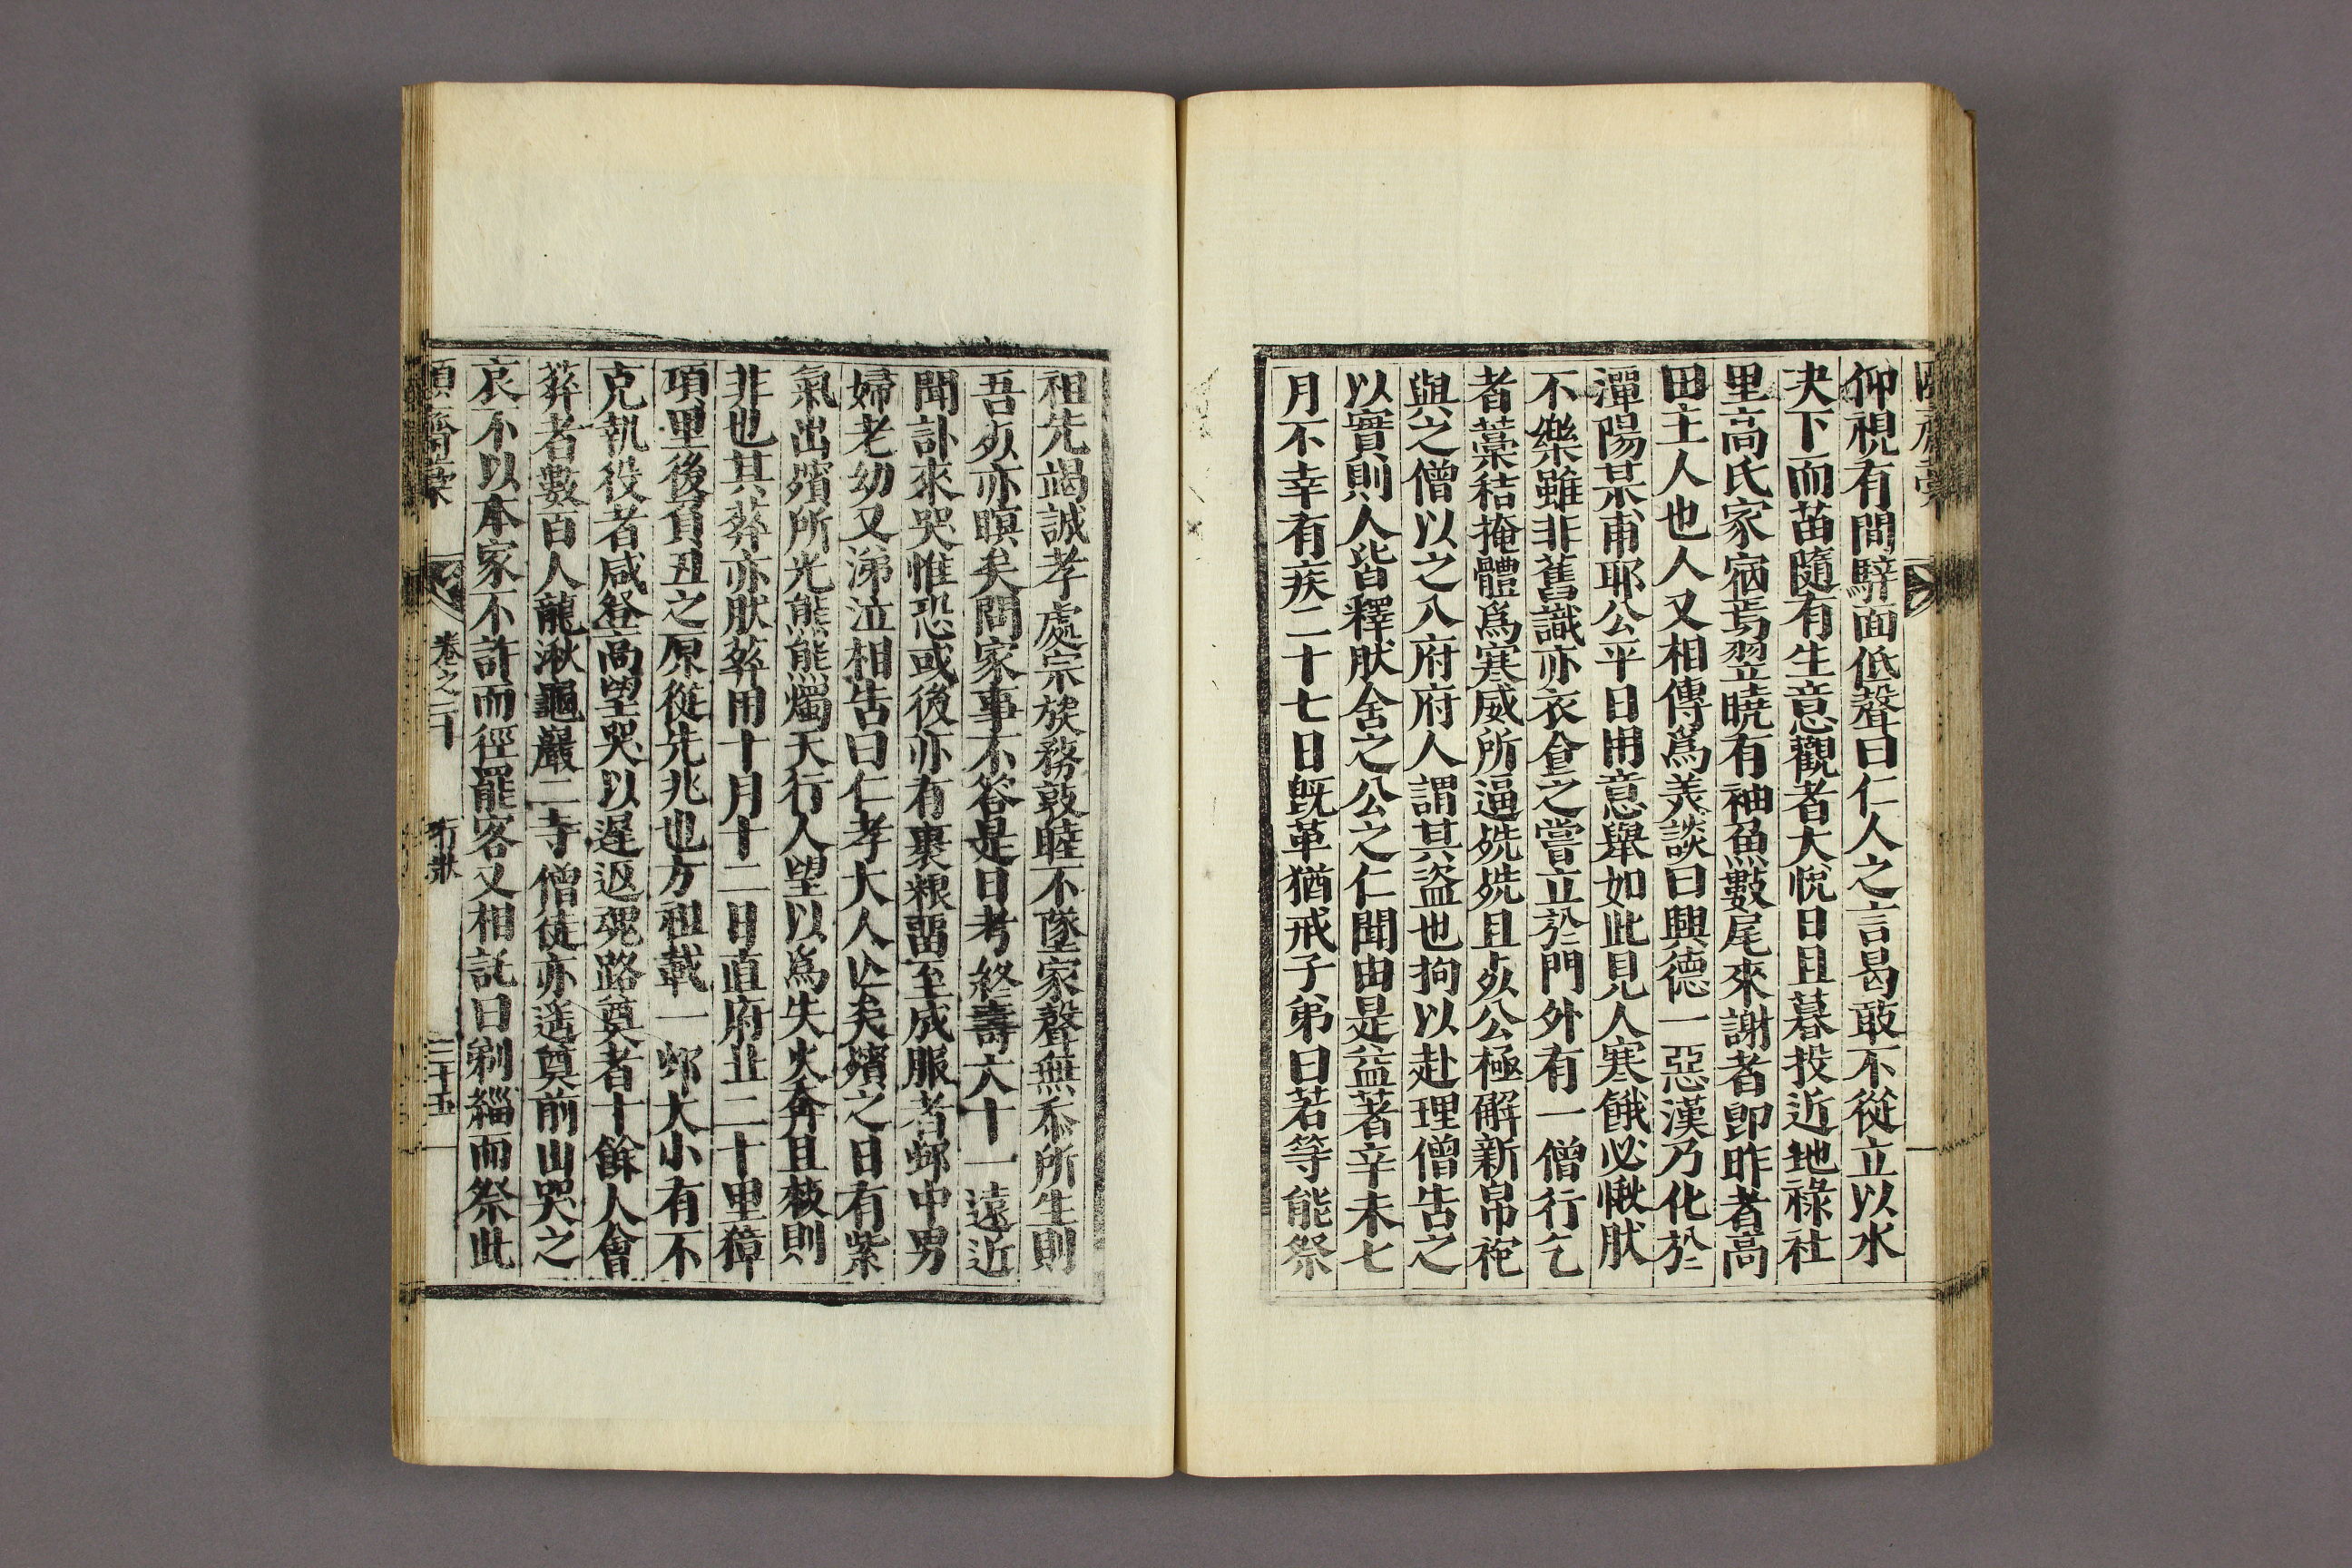 仰視有間騂面低聲曰仁人之言曷敢不從立以水
夬下而苗隨有生意觀者大悅日且暮投近地祿社
里高氏家宿焉翌曉有袖魚數尾來謝者卽昨者高
田主人也人又相傳爲美談曰興德一惡漢乃化於
潭陽某甫耶公平日用意舉如此見人寒餓必愀肰
不樂雖非舊識亦衣食之嘗立於門外有一僧行乞
者藁秸掩體爲寒威所逼兟兟且死公極解新帛袍
與之僧以之入府府人謂其盜也拘以赴理僧告之
以實則人皆釋肰舍之公之仁聞由是益著辛未七
月不幸有疾二十七日旣革猶戒子弟曰若等能祭
祖先竭誠孝處宗族務敦睦不墜家聲無忝所生則
吾死亦瞑矣問家事不答是日考終壽六十一遠近
聞訃來哭惟恐或後亦有裹粮留至成服者鄕中男
婦老幼又涕泣相告曰仁孝大人亾矣殯之日有紫
氣出殯所光熊熊燭天行人望以爲失火奔且救則
非也其葬亦肰葬用十月十二日直府北二十里獐
項里後負丑之原從先兆也方祖載一鄕大小有不
克執役者咸登高望哭以遲返魂路奠者十餘人會
葬者數百人龍湫龜巖二寺僧徒亦遙奠前山哭之
哀不以本家不許而徑罷客又相託曰剃緇而祭此
卷之二十
行狀
二十五